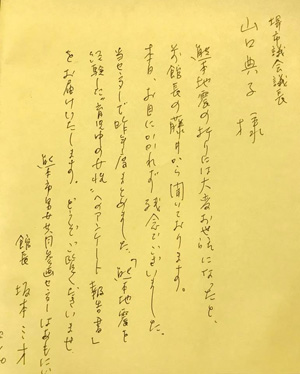 堺市議会議長
山口典子 様
熊本地震の折りには大変お世話になったと、
前館長の藤井から聞いております。
本日、お目にかかれず残念でございました。
当センターで昨年度まとめました、「熊本地震を
経験した"育児中の女性"へのアンケート報告書」
をお届けいたします。どうぞご覧くださいませ
熊本市男女共同参画センターはあもにい
館長 坂本ミオ